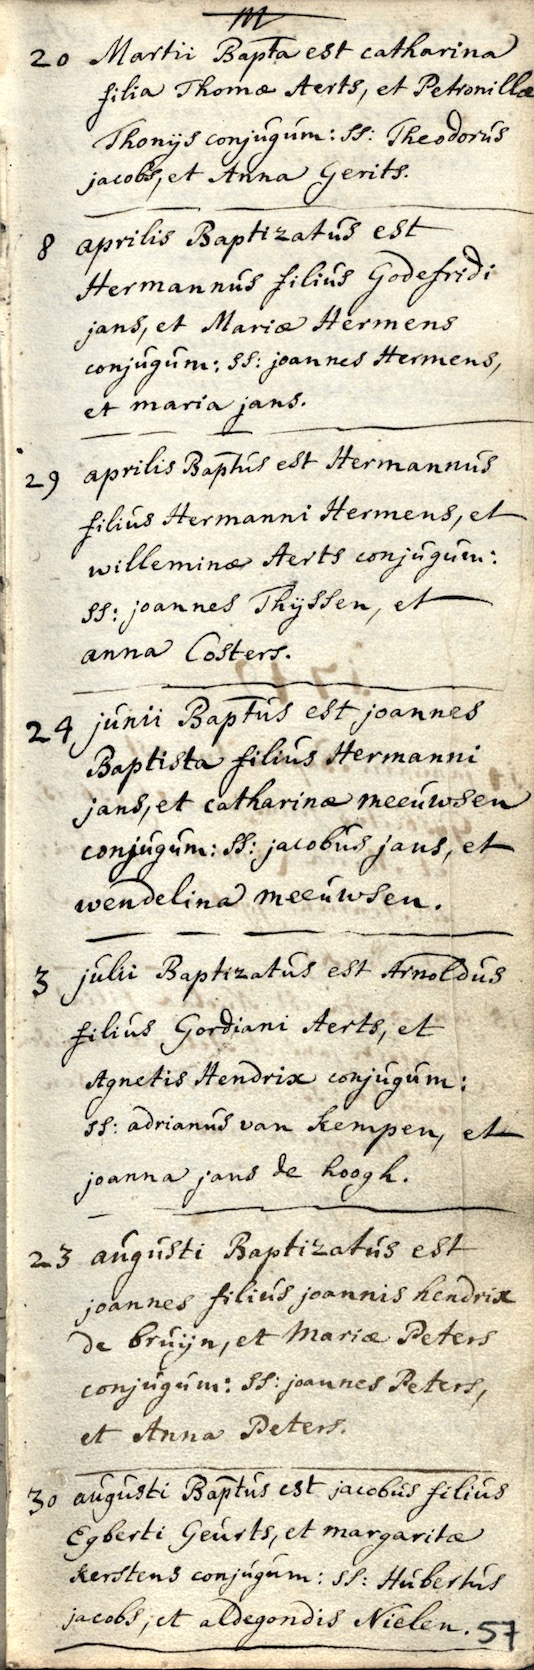 m
20 Martii Bapta est catharina
filia Thomæ Aerts, et Petronillæ
Thonijs conjugum: ss: Theodorus
jacobs, et Anna Gerits.
8 aprilis Baptizatus est
Hermannus filius Godefridi
jans, et Mariæ Hermens
conjugum: ss: joannes Hermens,
et maria jans.
29 aprilis Baptus est Hermannus
filius Hermanni Hermens, et
willeminæ Aerts conjugum:
ss: joannes Thijssen, et
anna Costers.
24 junii Baptus est joannes
Baptista filius Hermanni
jans, et catharinæ meeuwsen
conjugum: ss: jacobus jans, et
wendelina meeuwsen.
3 julii Baptizatus est Arnoldus
filius Gordiani Aerts, et
Agnetis Hendrix conjugum:
ss: adrianus van Kempen, et
joanna jans de hoogh.
23 augusti Baptizatus est
joannes filius joannis hendrix
de bruijn, et Mariæ Peters
conjugum: ss: joannes Peters,
et Anna Peters.
30 augusti Baptus est jacobus filius
Egberti Geurts, et margaritæ
Kerstens conjugum: ss: Hubertus
jacobs, et aldegondis Nielen. 57